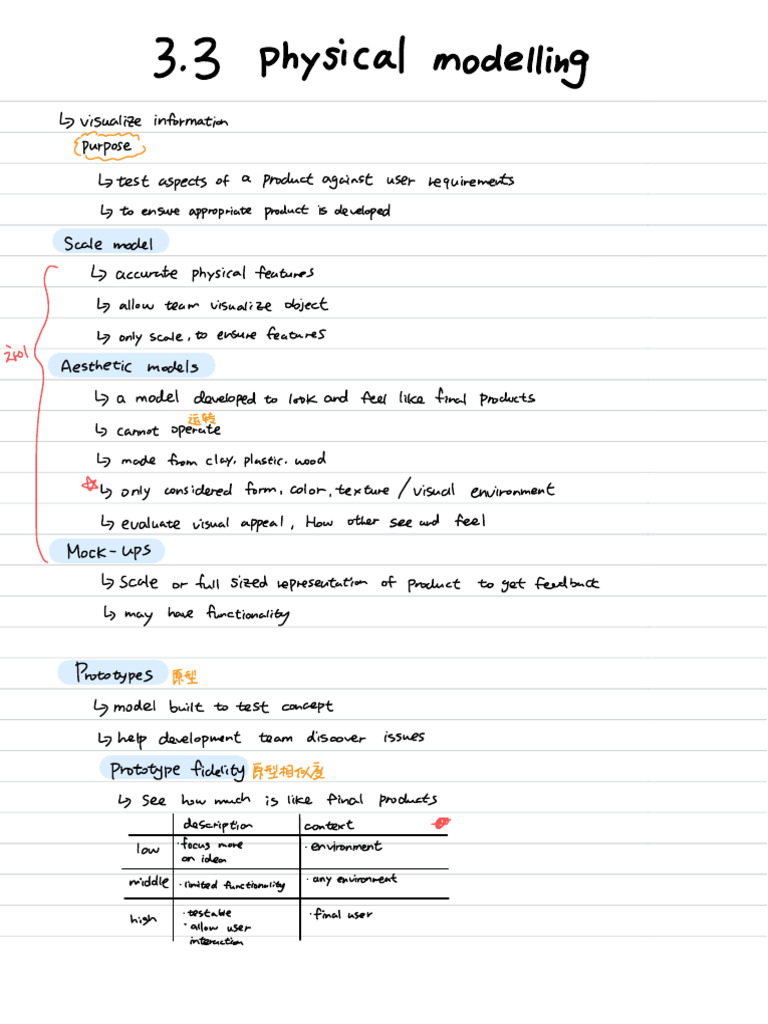 3.3 physical modelling
↳ visualize information
purpose
↳ test aspects of a product against user requirements
↳ to ensure appropriate product is developed
Scale model
↳ accurate physical features
↳ allow team visualize object
↳ only scale, to ensure features
Aesthetic models
↳ a model developed to look and feel like final products
运转
↳ cannot operate
↳ made from clay, plastic, wood
☆ ↳ only considered form, color, texture / visual environment
↳ evaluate visual appeal, How other see and feel
Mock-ups
↳ Scale or full sized representation of product to get feedback
↳ may have functionality
Prototypes 原型
↳ model built to test concept
↳ help development team discover issues
Prototype fidelity 原型相似度
↳ see how much is like final products
description context
low · focus more on idea · environment
middle · limited functionality · any environment
high · testable · final user
· allow user
interaction